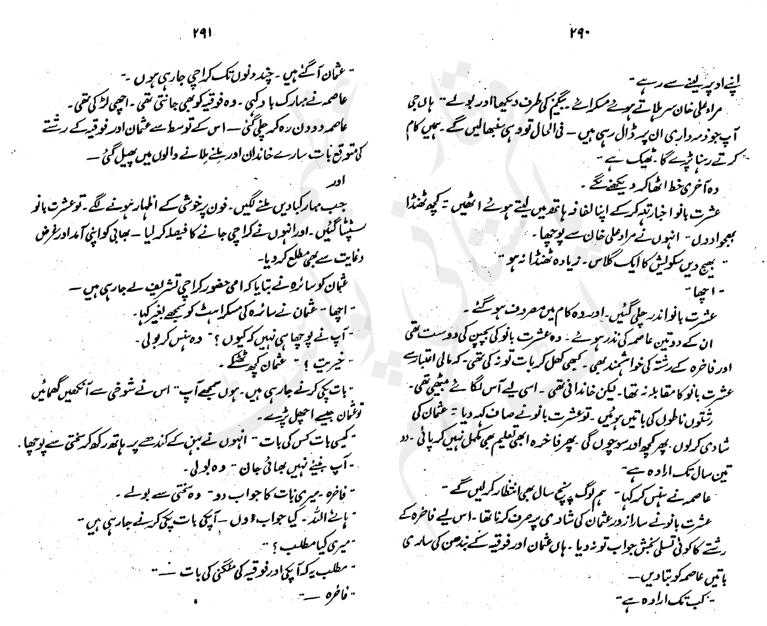 ۲۹۰
اپنے اوپر لینے سے رہے"
مراد علی خان سر ہلاتے ہوئے مسکرائے بیگم کی طرف دیکھا اور بولے" ہاں جی
آپ جو ذمہ داری ان پر ڈال رہی ہیں — فی الحال تو وہی سنبھالیں گے۔ ہمیں کام
کرتے رہنا پڑے گا۔ ٹھیک ہے"
وہ آخری خط اٹھا کر دیکھنے لگے۔
عشرت بانو اخبار تہہ کر کے اپنا لفافہ ہاتھ میں لیتے ہوئے اٹھیں۔ "کچھ ٹھنڈا
بھجوا دوں" انہوں نے مراد علی خان سے پوچھا۔
"بھیج دیں سکواش کا ایک گلاس۔ زیادہ ٹھنڈا نہ ہو"
"اچھا"
عشرت بانو اندر چلی گئیں۔ اور وہ کام میں مصروف ہو گئے۔
ان کے دو تین عاصمہ کی نذر ہوئے۔ وہ عشرت بانو کی بچپن کی دوست تھی
اور فاخرہ کے رشتہ کی خواہشمند بھی۔ کبھی کھل کر بات تو نہ کی تھی۔ کہ مالی اعتبار سے
عشرت بانو کا مقابلہ نہ تھا۔ لیکن خاندانی تھی۔ اسی لیے آس لگائے بیٹھی تھی۔
رشتوں ناطوں کی باتیں ہوئیں۔ تو عشرت بانو نے صاف کہہ دیا "عثمان کی
شادی کر لوں۔ پھر کچھ اور سوچوں گی۔ پھر فاخرہ ابھی تعلیم بھی مکمل نہیں کر پائی۔ دو
تین سال تک ارادہ ہے"
عاصمہ نے ہنس کر کہا" ہم لوگ پانچ سال بھی انتظار کر لیں گے"
عشرت بانو نے سارا زور عثمان کی شادی پر صرف کرنا تھا۔ اس لیے فاخرہ کے
رشتے کا کوئی تسلی بخش جواب تو نہ دیا۔ ہاں عثمان اور فوقیہ کے بندھن کی ساری
باتیں عاصمہ کو بتا دیں—
"کب تک ارادہ ہے"
۲۹۱
"عثمان آگئے ہیں۔ چند دنوں تک کراچی جا رہی ہوں۔"
عاصمہ نے مبارکباد کہی۔ وہ فوقیہ کو بھی جانتی تھی۔ اچھی لڑکی تھی۔
عاصمہ دو دن رہ کر چلی گئی — اس کے توسط سے عثمان اور فوقیہ کے رشتے
کی متوقع بات سارے خاندان اور ملنے ملانے والوں میں پھیل گئی—
اور
جب مبارکبادیں ملنے لگیں۔ فون پر خوشی کے اظہار ہونے لگے۔ تو عشرت بانو
سٹپٹا گئیں۔ اور انہوں نے کراچی جانے کا فیصلہ کر لیا — بھائی کو اپنی آمد اور غرض
و غایت سے بھی مطلع کر دیا۔
عثمان کو سائرہ نے بتایا کہ امی حضور کراچی تشریف لے جا رہی ہیں—
"اچھا" عثمان نے سائرہ کی مسکراہٹ کو سمجھے بغیر کہا۔
"آپ نے پوچھا ہی نہیں کہ کیوں؟" وہ ہنس کر بولی۔
"خیریت؟" عثمان کچھ ٹھٹکے۔
"بات پکی کرنے جا رہی ہیں۔ ہوں سمجھے آپ" اس نے شوخی سے آنکھیں گھمائیں
تو عثمان جیسے اچھل پڑے۔
"کیسی بات کس کی بات" انہوں نے بہن کے کندھے پر ہاتھ رکھ کر سختی سے پوچھا۔
"آپ بنیئے نہیں بھائی جان" وہ بولی۔
"فاخرہ۔ میری بات کا جواب دو" وہ سختی سے بولے۔
"ہائے اللہ۔ کیا جواب دوں — آپکی بات پکی کرنے جا رہی ہیں"
"میری کیا مطلب؟"
"مطلب یہ کہ آپکی اور فوقیہ کی منگنی کی بات —"
"فاخرہ —"